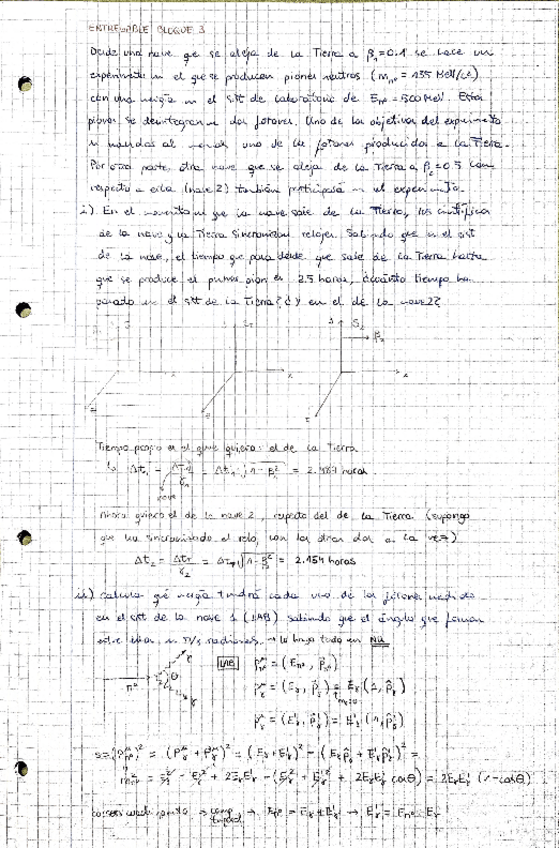 ENTREGABLE BLOQUE 3
Desde una nave que se aleja de la Tierra a β₁=0.1 se hace un
experimento en el que se producen piones neutros (m_π⁰ = 135 MeV/c²)
con una energía en el sist de laboratorio de E_π⁰ = 500 MeV. Estos
piones se desintegran en dos fotones. Uno de los objetivos del experimento
es mandar al menos uno de los fotones producidos a la Tierra.
Por otra parte, otra nave que se aleja de la Tierra a β₂=0.5 con
respecto a esta (nave 2) también participará en el experimento.
i) En el momento en que la nave sale de la Tierra, los científicos
de la nave y la Tierra sincronizan relojes. Sabiendo que en el sist
de la nave, el tiempo que pasa desde que sale de la Tierra hasta
que se produce el primer pión es 2.5 horas, ¿cuánto tiempo ha
pasado en el sist de la Tierra? ¿Y en el de la nave 2?
S₂
β₂
x
x
x
z
z
z
Tiempo propio es el que quiero: el de la Tierra
= 2.487 horas.
nave
Ahora quiero el de la nave 2, respecto del de la Tierra (supongo
que ha sincronizado el reloj con los otros dos a la vez)
Δt₂ = Δt_T/γ₂ = Δt_T √(1-β₂²) = 2.154 horas
ii) Calcula qué energía tendrá cada uno de los fotones medido
en el sist de la nave 1 (LAB) sabiendo que el ángulo que forman
entre ellos es π/5 radianes. → lo hago todo en NU
LAB
π⁰
γ
θ
γ
p^μ_π⁰ = (E_π⁰, p⃗_π⁰)
p^μ_γ = (E_γ, p⃗_γ) = E_γ(1, p̂_γ)
p'^μ_γ = (E'_γ, p⃗'_γ) = E'_γ(1, p̂'_γ)
s = (p^μ_π⁰)² = (p^μ_γ + p'^μ_γ)² = (E_γ + E'_γ)² - (E_γ p̂_γ + E'_γ p̂'_γ)² =
m²_π⁰ = E²_γ + E'²_γ + 2E_γE'_γ - (E²_γ + E'²_γ + 2E_γE'_γ cosθ) = 2E_γE'_γ (1-cosθ)
→ E_π⁰ = E_γ + E'_γ → E'_γ = E_π⁰ - E_γ